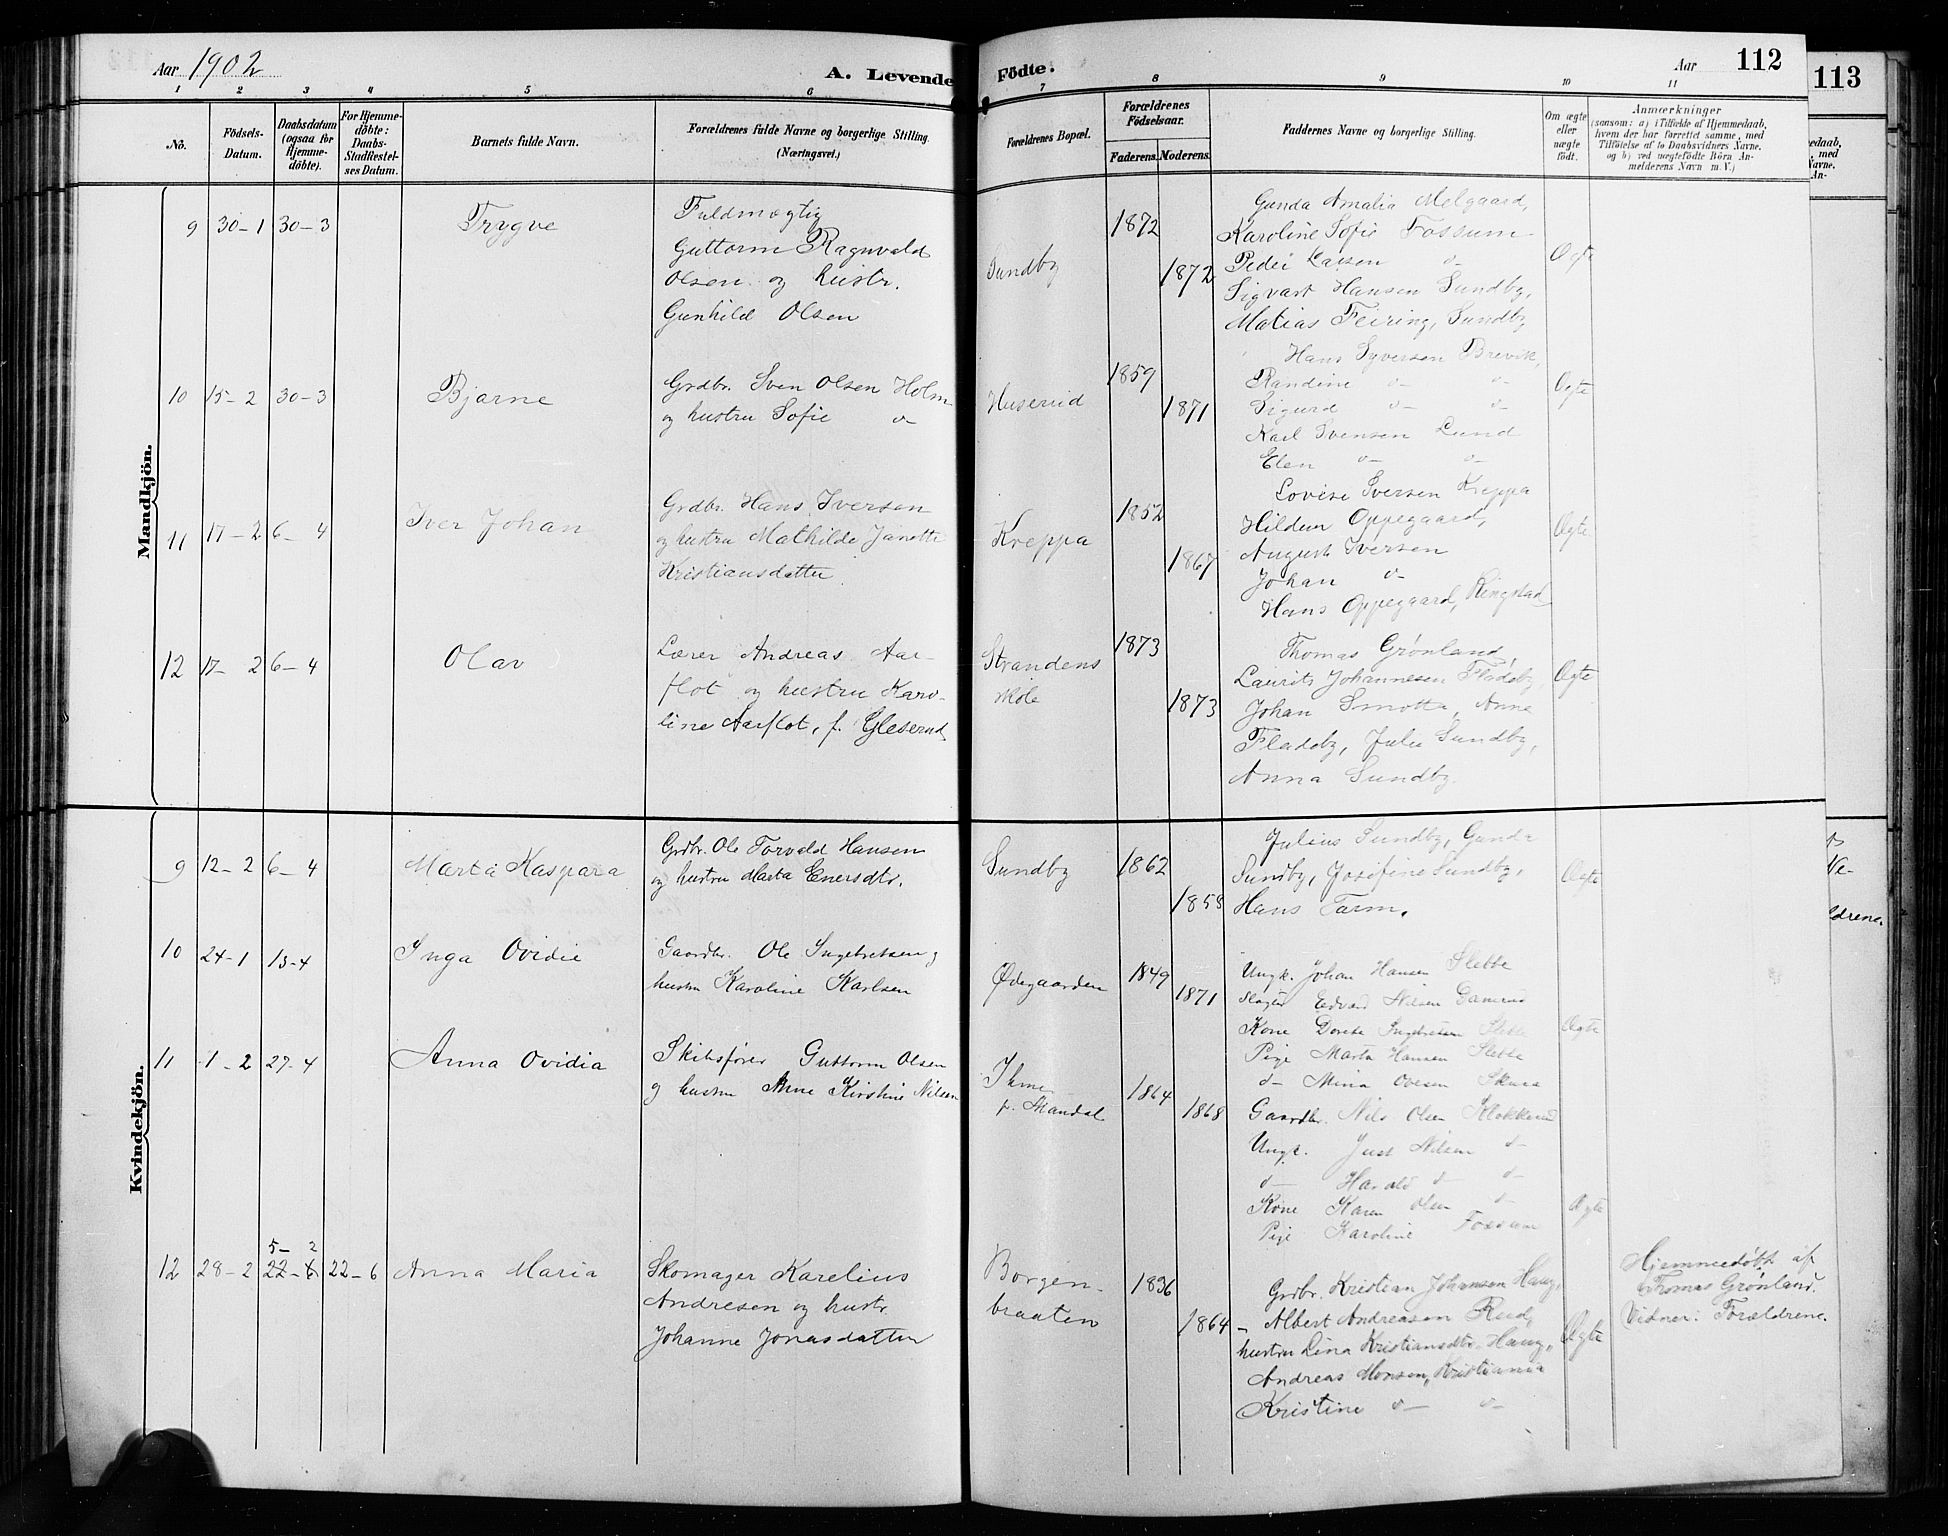 Aar 1902
A. Levende Födte.
Aar
112
113
1 2 3 4 5 6 7 8 9 10 11
No.
Födsels-Datum.
Daabsdatum (ogsaa for Hjemme-döbte).
For Hjemme-döbte: Daabs-Stadfæstel-ses Datum.
Barnets fulde Navn.
Forældrenes fulde Navne og borgerlige Stilling. (Næringsvei.)
Forældrenes Bopæl.
Forældrenes Födselsaar.
Faderens. Moderens.
Faddernes Navne og borgerlige Stilling.
Om ægte eller uægte födt.
Anmærkninger
(saasom: a) i Tilfælde af Hjemmedaab, hvem der har forrettet samme, med Tilföielse af to Daabsvidners Navne. og b) ved uægtefödte Börn An-melderens Navn m. V.)
edaab,
, med
Navne.
An-
Mandkjön.
9 30-1 30-3 Trygve
Fuldmægtig
Guttorm Ragnvald
Olsen og hustr.
Gunhild Olsen
Sundby
1872
1872
Gunda Amalia Melgaard,
Karoline Sofie Fossum
Peder Larsen d-
Sigvart Hansen Sundby,
Matias Feiring, Sundby
Ægte
10 15-2 30-3 Bjarne
Grdbr. Sven Olsen Holm
og hustru Sofie d-
Huserud
1859
1871
Hans Syversen Brevik,
Randine d- d-
Sigurd d- d-
Karl Svensen Lund
Elen d- d-
Ægte
11 17-2 6-4 Iver Johan
Grdbr. Hans Iversen
og hustru Mathilde Janette
Kristiansdatter.
Kreppa
1852
1867
Lovise Iversen Kreppa
Hildur Oppegaard,
August Iversen
Johan d-
Hans Oppegaard, Ringstad
Ægte
12 17-2 6-4 Olav
Lærer Andreas Aar-
flot og hustru Karo-
line Aarflot, f. Glesérud
Strandens
skole
1873
1873
Thomas Grønland,
Laurits Johannesen Fladeby
Johan Smotta, Anne
Fladeby, Julie Sundby,
Anna Sundby.
Ægte
Kvindekjön.
9 12-2 6-4 Marta Kaspara
Grdbr. Ole Torvald Hansen
og hustru Marta Enersdtr.
Sundby
1862
1858
Julius Sundby, Gunda
Sundby, Josefine Sundby,
Hans Tarm.
Ægte
10 24-1 13-4 Inga Ovidie
Gaardbr. Ole Ingebretsen og
hustru Karoline Karlsen
Ødegaarden
1849
1871
Ungk. Johan Hansen Slette
Slagter Edvard Nilsen
Kone Dorete Ingebretsen Slette
Pige Marta Hansen Slette
d- Mina Ovesen
Ægte
11 1-2 27-4 Anna Ovidia
Skibsfører Guttorm Olsen
og hustru Anne Kirstine Nilsen
Ihme
p. Mandal
1864
1868
Gaardbr. Nils Olsen Klokkerud
Ungk. Just Nilsen d-
d- Harald d- d-
Kone Karen Olsen d-
Pige Karoline Fossum
Ægte
5- 2
12 28-2 22-6 22-6 Anna Maria
Skomager Karelius
Andresen og hustr.
Johanne Jonasdatter
Borgen-
braaten
1836
1864
Grdbr. Kristian Johansen Haug,
- Albert Andreasen Rud,
hustru Lina Kristiansdtr. Haug,
Andreas Monsen, Kristiania
Kristine d- d-
Ægte
Hjemmedøbt af
Thomas Grønland.
Vidner: Forældrene.
ldrene.